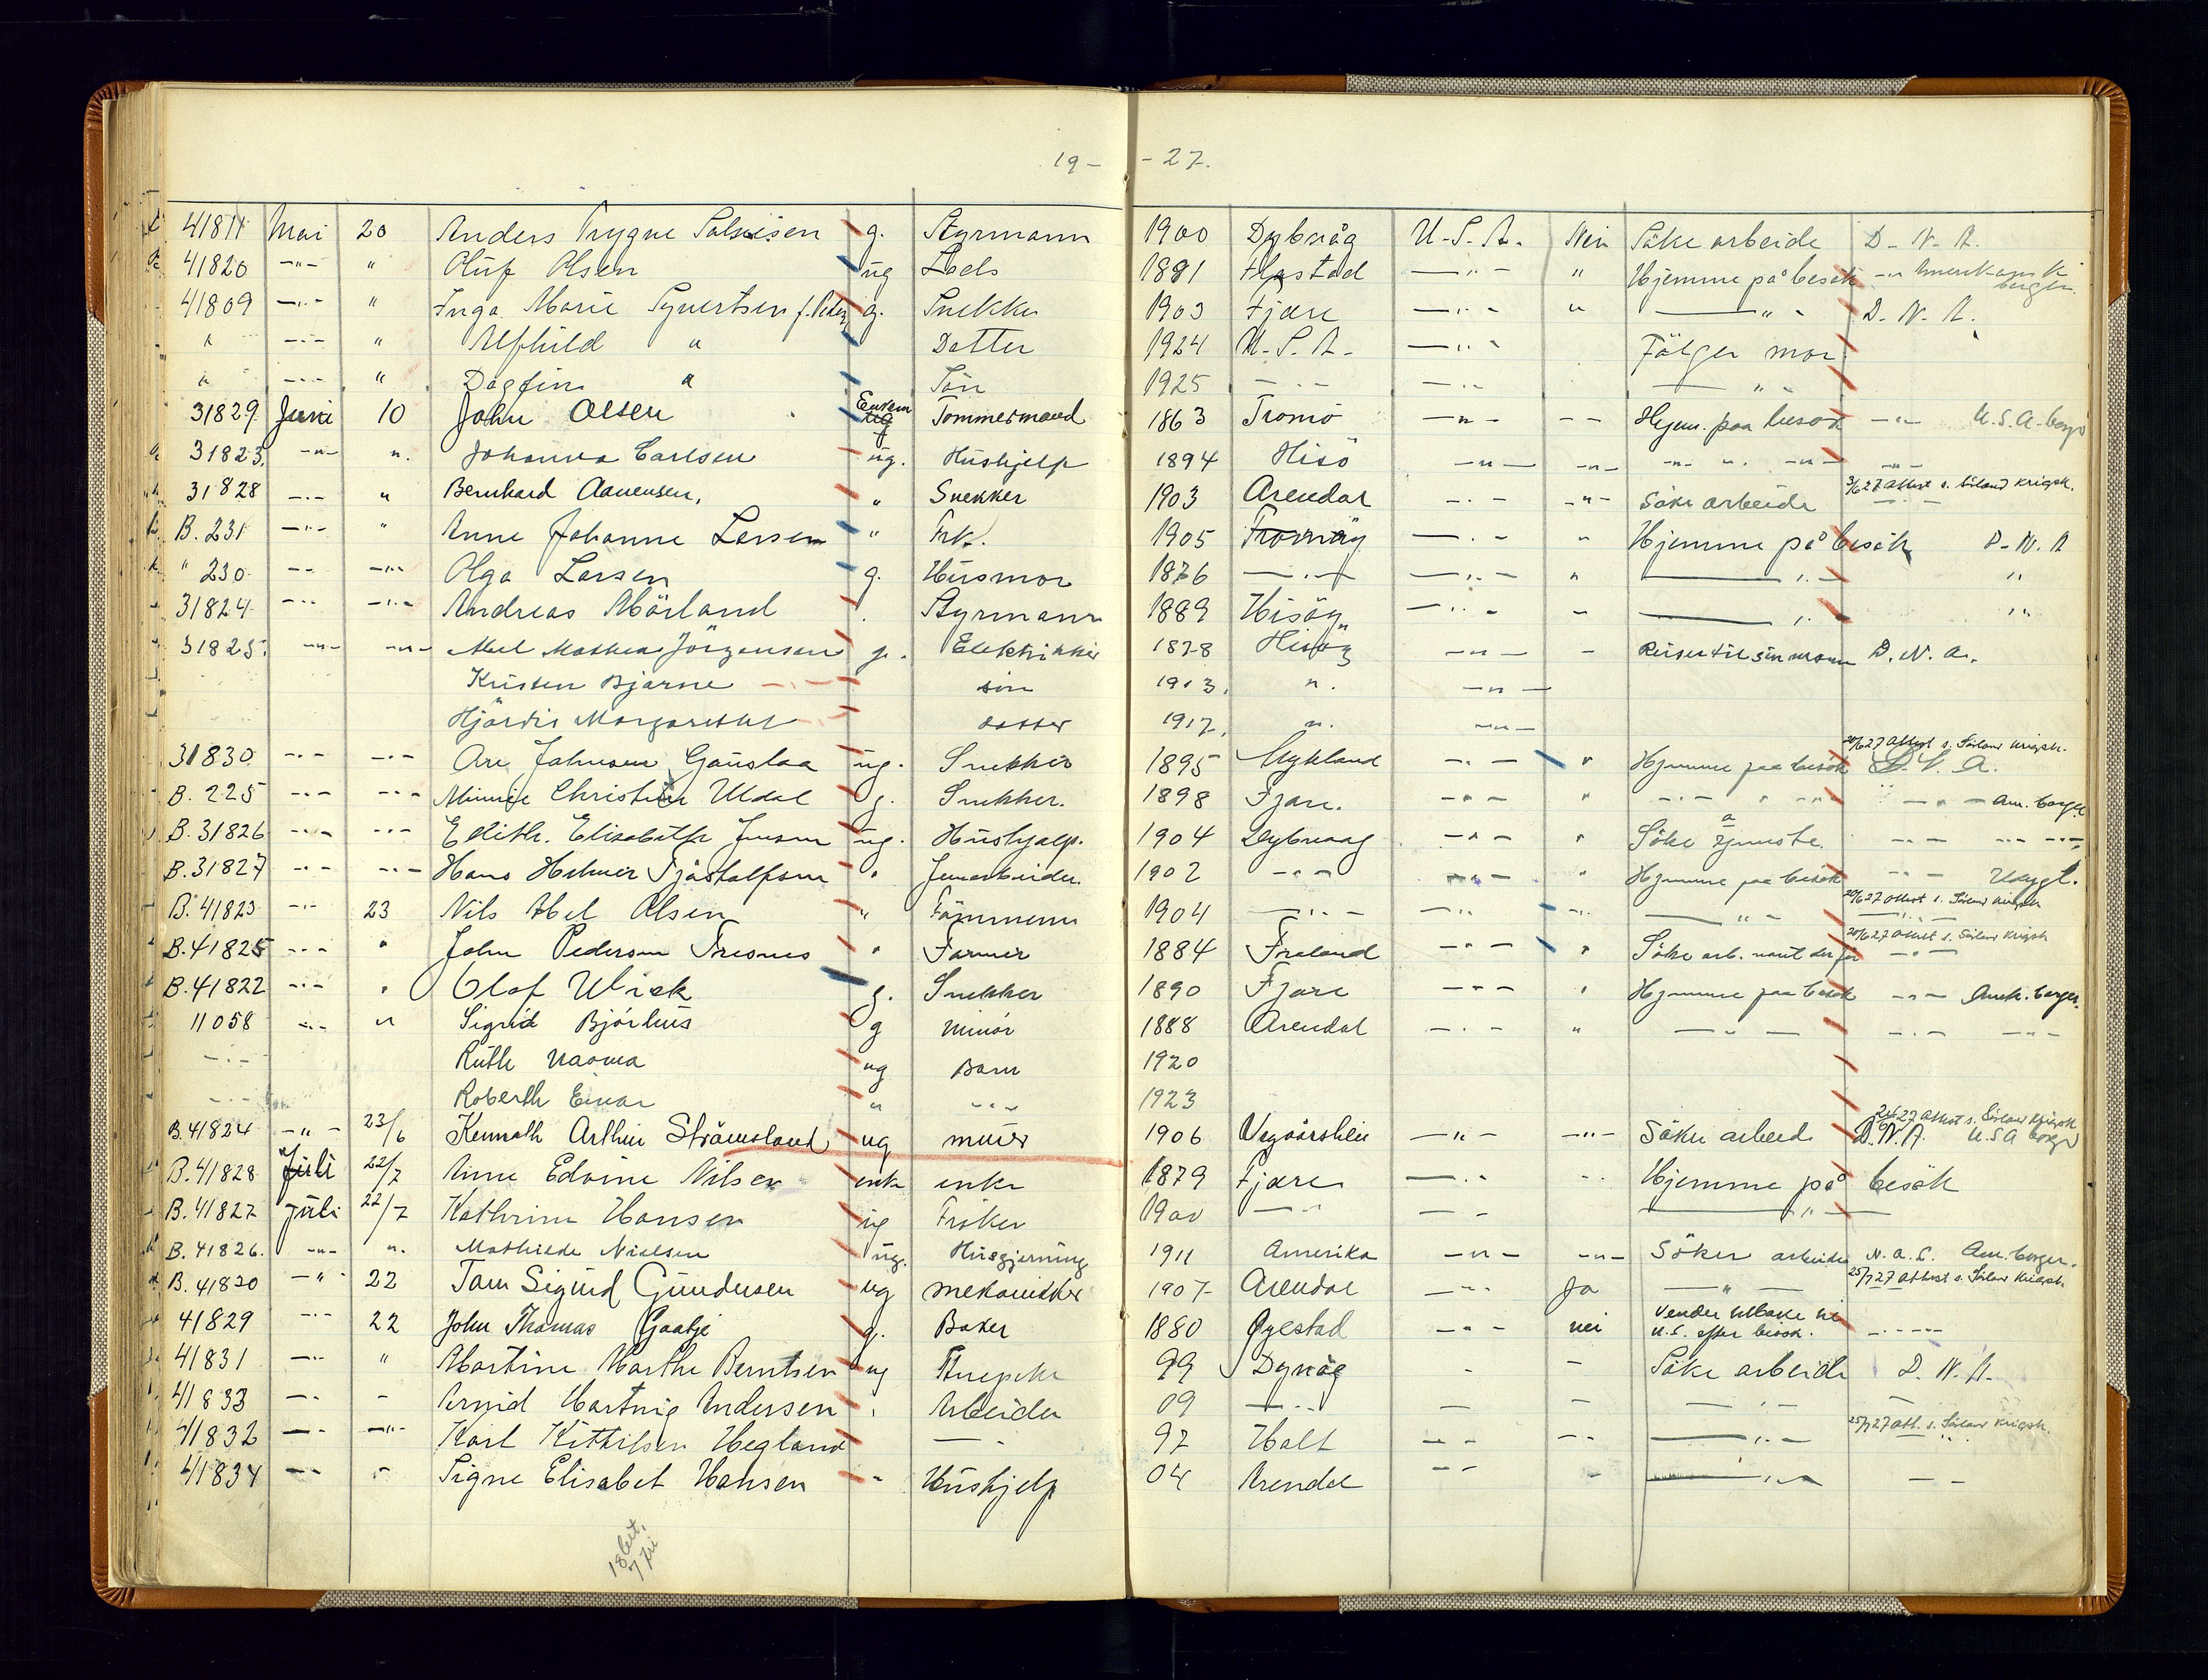 19- -27.
41811 Mai 20 Anders Trygve g. Styrmann 1900 Dybvåg U.S.A. Nei Söke arbeide D.N.A.
41820 -"- " Oluf Olsen ug Lods 1881 -"- " Hjemme på besök -"- Amerikansk borger.
41809 -"- " Inga Marie Syvertsen g. Snekker 1903 Fjære -"- " -"- D.N.A.
" -"- " Alfhild " Datter 1924 U.S.A. -"- Fölger mor
" -"- " Dagfin " Sön 1925 -"- -"- -"-
31829 Juni 10 John Olsen Enkem ug Tommermand 1863 Tromö -"- -- Hjem. paa besøk -"- U.S.A-borger
31823. -"- ". Johanna Carlsen ug. Hushjelp 1894 Hisö -"- -"- -"- ". -"- -"-
31828 -"- " Bernhard Aanensen, " Snekker 1903 Arendal -"- -"- Söke arbeide 3/6 27 attest s. Sörland krigsk.
B. 231 -"- " Anne Johanne Larsen " Frk. 1905 Tromöy -"- " Hjemme på besök D.N.A
" 230 -- -"- Olga Larsen g. Husmor 1876 -"- -"- " -"- "
31824 -"- -"- Andreas Mörland . Styrmann 1889 Hisöy -"- - -"- "
31825. -"- -"- Jörgensen g. Elektrikker 1878 Hisöy -"- - Reiser til sin D.N.A.
Kristen Bjarne -"- sön 1913. ". -"-
Hjördis Margarethe -"- datter 1917. ". -"-
31830 -"- -"- Are Johnsen Gauslaa ug. Snekker 1895 Mykland -"- " Hjemme paa besök 20/6 27 attest s. Sörland krigsk. D.N.A.
B. 225 -"- -"- Minnie Christine Uldal g. Snekker. 1898 Fjære. -"- " -"- " -"- -"- Am. borger
B. 31826 -"- -"- Edith. Elisabeth Jensen ug. Hushjælp. 1904 Dybvaag -"- " Söke tjeneste -"- -"-
B. 31827 -"- -"- Hans Helmer " Jernarbeider. 1902 -"- -"- " Hjemme paa besök -"-
B. 41823 -"- 23 Nils Abel Olsen " Tömmerm 1904 -"- -"- -"- -"- 20/6 27 attest s. Sörland krigsk
B. 41825 -"- " John Pedersen Tresnes " Farmer 1884 Froland -"- " Söke arb. 20/6 27 attest s. Sörland krigsk -"-
B. 41822 -"- " Olaf g. Snekker 1890 Fjære -"- " Hjemme paa besök -"- Amk. borger.
11058 -"- " Sigrid Björhus g minör 1888 Arendal -"- " -"- -"- -"-
-"- Ruth Naoma ug Barn 1920
-"- Roberth Einar " -"- 1923
B. 41824 -"- 23/6 Kenneth Arthur Strömsland ug murer 1906 Vegaarshei -"- -"- Söker arbeid D.N.A. U.S.A borger
B. 41828 Juli 22/7 Anne Edvine Nilsen enke enke 1879 Fjære -"- -"- Hjemme på besök
B. 41827 Juli 22/7 Kathrine Hansen ug Fröken -"- -"- -"-
B. 41826. -"- ". Mathilde Nielsen ug. Husgjerning 1911 Amerika -"- -"- Söker arbeide N.A.L. Am. borger.
B. 41830 -"- 22 Tam Sigurd Gundersen ug mekaniker 1907 Arendal -"- Ja -"- 25/7 27 attest s. Sörland krigsk.
41829 -"- 22 John Thomas Gaatje g. Baker 1880 Øyestad -"- nei Vender tilbake til U.S. efter besøk. -"-
41831 -"- " Martine Marthe Berntsen ug 99 Dyvåg - - Söke arbeide D.N.A.
41833 -"- - Arnid Hartvig Andersen " Arbeider 09 -"- - - -"- -
41832 -"- -"- Karl Kittilsen Hegland -"- 97 Holt -"- -"- -"- 25/7 27 att. s. Sörland krigsk.
41834 -"- " Signe Elisabet Hansen " Hushjelp 04 Arendal -"- " -"- --
18 bet.
7 fri